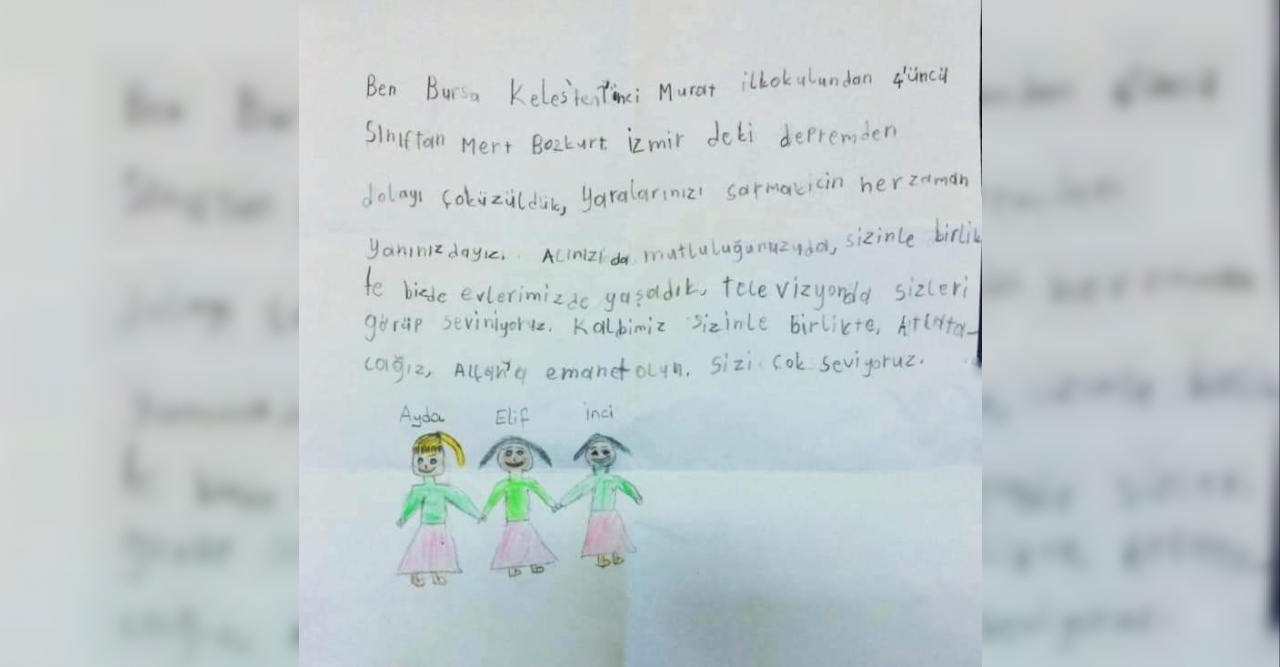 Ben Bursa Keles'ten 1'inci Murat ilkokulundan 4'üncü
Sınıftan Mert Bozkurt. İzmir deki depremden
dolayı çoküzüldük, Yaralarınızı sarmakicin herzaman
Yanınızdayız. Acınızı da mutluluğunuzuda, sizinle birlik
te bizde evlerimizde yaşadık, televizyonda sizleri
görüp seviniyoruz. Kalbimiz sizinle birlikte, Atlata-
cağız, Allah'a emanet olun. Sizi çok seviyoruz.
Ayda Elif inci